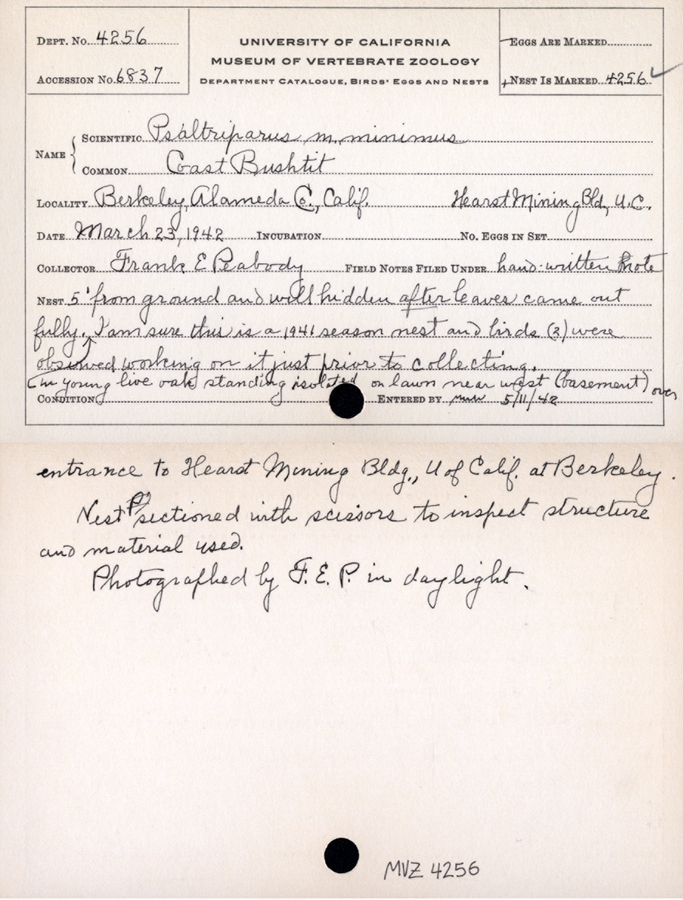 Dept. No. 4256
UNIVERSITY OF CALIFORNIA
MUSEUM OF VERTEBRATE ZOOLOGY
Department Catalogue, Birds' Eggs and Nests
Accession No. 6837
Eggs Are Marked
Nest Is Marked 4256 ✓
Name { Scientific Psaltriparus m. minimus
Common Coast Bushtit
Locality Berkeley, Alameda Co., Calif. Hearst Mining Bld, U.C.
Date March 23, 1942 Incubation No. Eggs in Set
Collector Frank E Peabody Field Notes Filed Under hand-written note
Nest 5' from ground and well hidden after leaves came out
fully. I am sure this is a 1941 season nest and birds (2) were
observed working on it just prior to collecting.
(in young live oak) standing isolated on lawn near west (basement) over
Condition Entered by 5/11/42
entrance to Hearst Mining Bldg., U of Calif. at Berkeley.
Nest sectioned with scissors to inspect structure
and material used.
Photographed by F. E. P. in daylight.
MVZ 4256